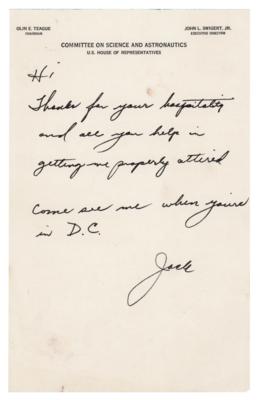 OLIN E. TEAGUE
CHAIRMAN
JOHN L. SWIGERT, JR.
EXECUTIVE DIRECTOR
COMMITTEE ON SCIENCE AND ASTRONAUTICS
U.S. HOUSE OF REPRESENTATIVES
Hi
Thanks for your hospitality
and all you help in
getting me properly attired
Come see me when you're
in D.C.
Jack